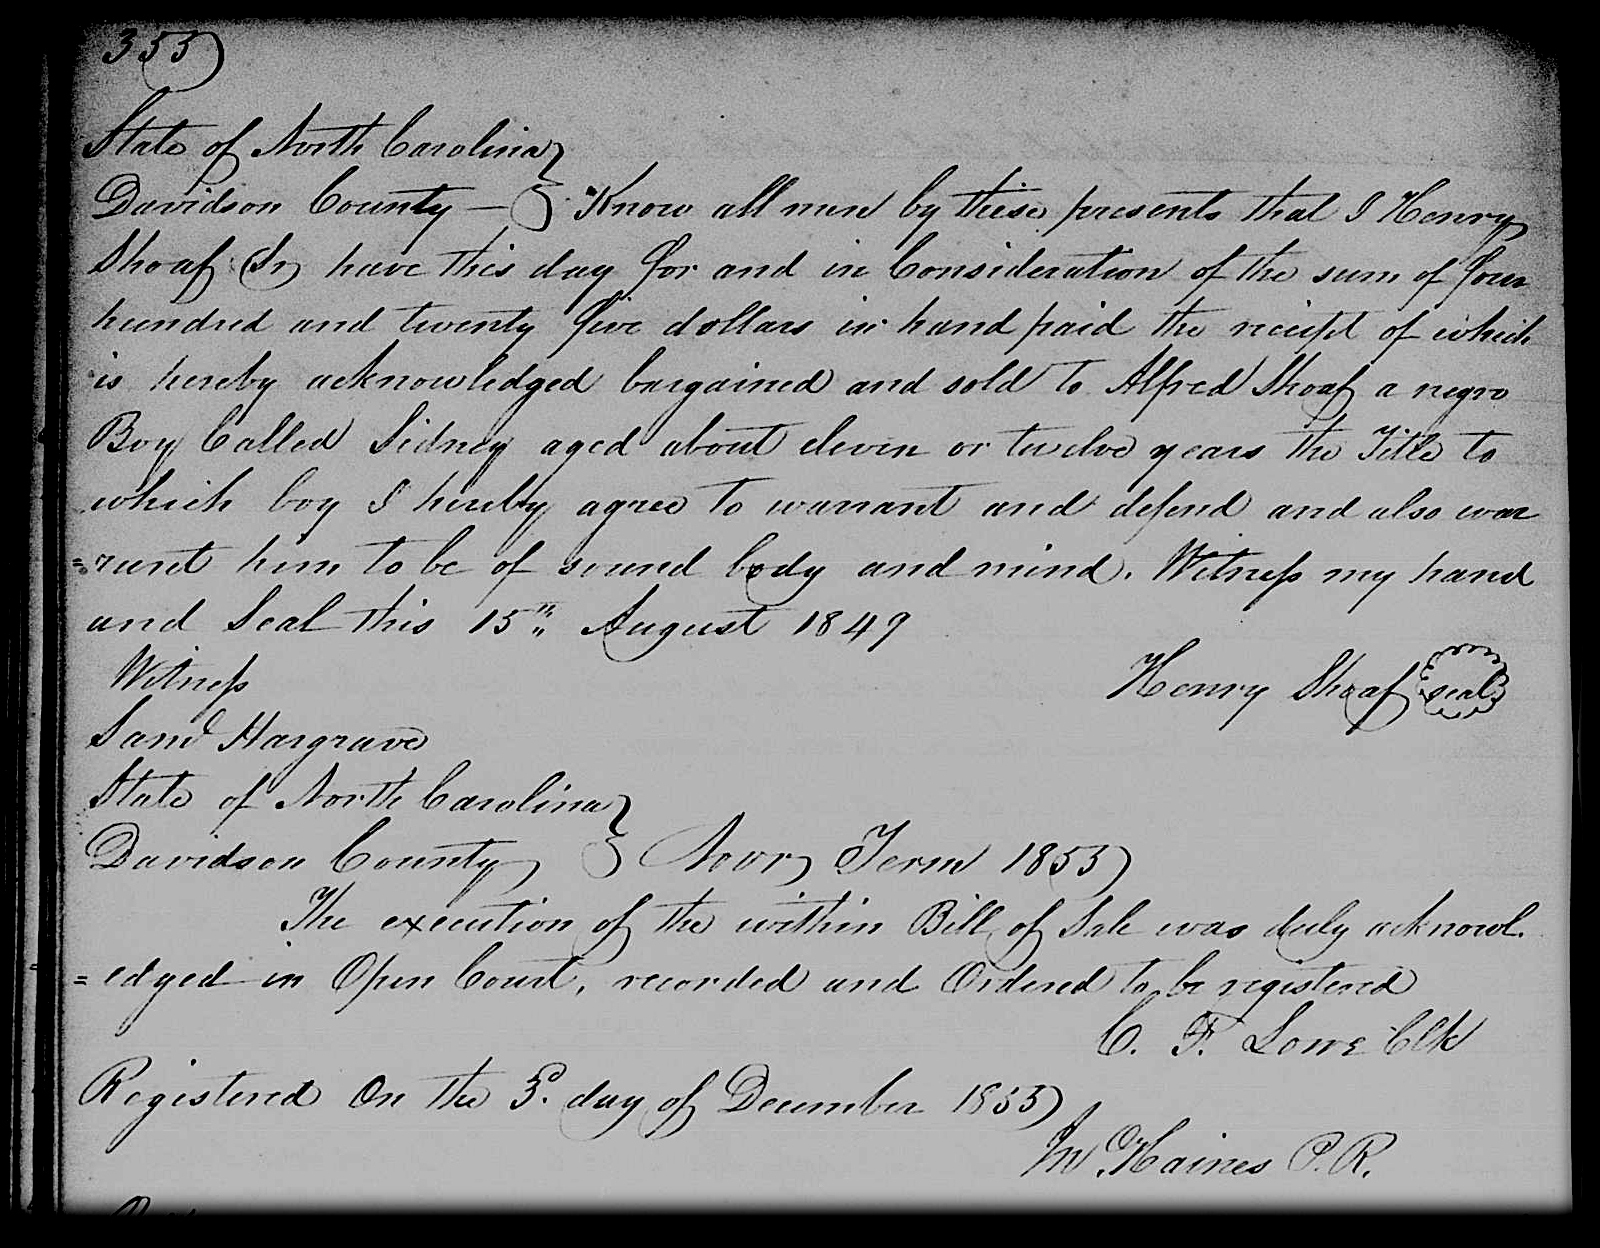 353
State of North Carolina
Davidson County — Know all men by these presents that I Henry
Shoaf Sr have this day for and in Consideration of the sum of four
hundred and twenty five dollars in hand paid the receipt of which
is hereby acknowledged bargained and sold to Alfred Shoaf a negro
Boy Called Sidney aged about eleven or twelve years the Title to
which boy I hereby agree to warrant and defend and also war
=rant him to be of sound body and mind. Witness my hand
and Seal this 15th August 1849
Witness
Henry Shoaf seal
Saml Hargrave
State of North Carolina
Davidson County Novr Term 1853
The execution of the within Bill of Sale was duly acknowl.
=edged in Open Court, recorded and Ordered to be registered
C. F. Lowe Clk
Registered On the 3d. day of December 1853
Haines P.R.